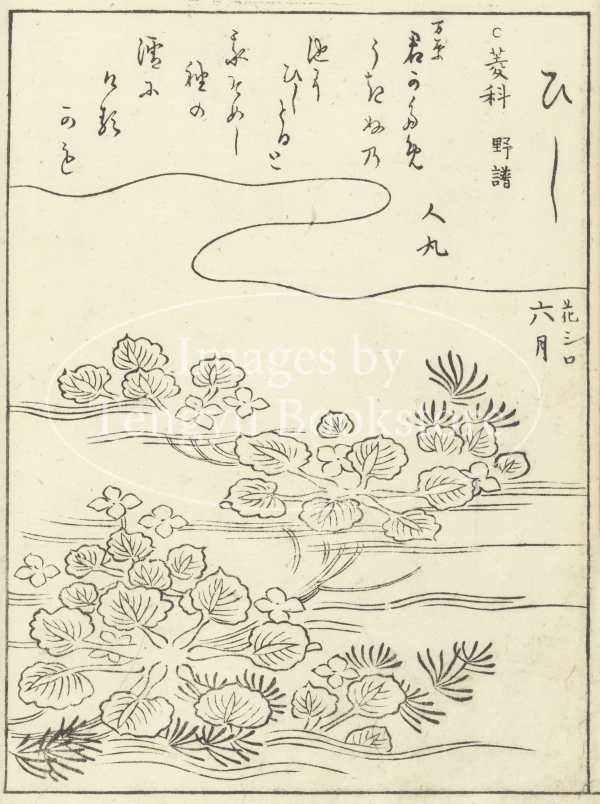 ひし
C菱科 野譜
万葉
君かため
うきぬ乃
池の
ひしとると
我そめし
袖の
濡に
ける
かも
人丸
花シロ
六月
Images by
Tengyu Bookstore